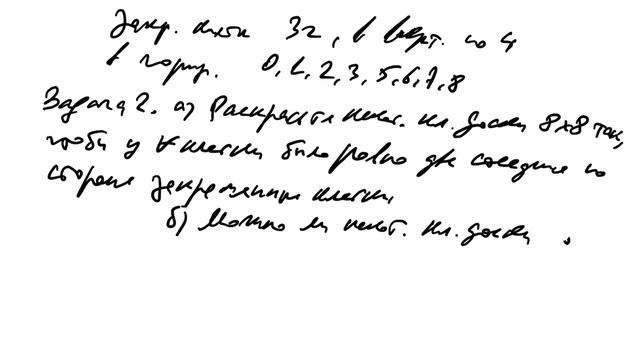 Закр. клетки 32, в верт. по 4
в гориз. 0, 1, 2, 3, 5, 6, 7, 8
Задача 2. а) Раскрасить некот. кл. доски 8х8 так,
чтобы у ∀ клетки было ровно две соседние по
стороне закрашенные клетки
б) Можно ли некот. кл. доски